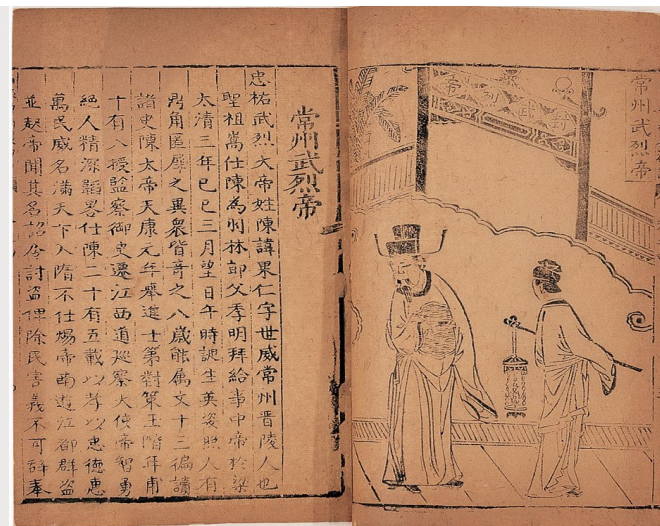 常州武烈帝
常州武烈帝
忠祐武烈大帝姓陳諱果仁字世威常州晋陵人也
聖祖嵩仕陳為州林郎父季明拜給事中帝於梁
太清三年己巳三月望日午時誕生英姿照人有
鼎角匿犀之異衆皆奇之八歲能属文十三徧讀
諸史陳太帝天康元年舉進士第對策玉階年甫
十有八授監察御史遷江西道廵察大使帝智勇
絕人精深韜畧仕陳二十有五載以孝以忠德惠
萬民威名滿天下入隋不仕煬帝南遊江都群盗
並起帝聞其名詔令討盗俾除民害義不可辞奉